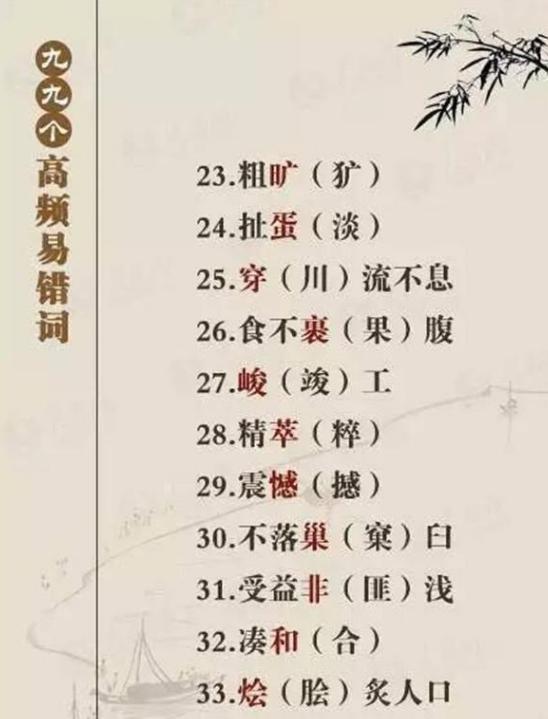 九九个高频易错词
23.粗旷（犷）
24.扯蛋（淡）
25.穿（川）流不息
26.食不裹（果）腹
27.峻（竣）工
28.精萃（粹）
29.震憾（撼）
30.不落巢（窠）臼
31.受益非（匪）浅
32.凑和（合）
33.烩（脍）炙人口